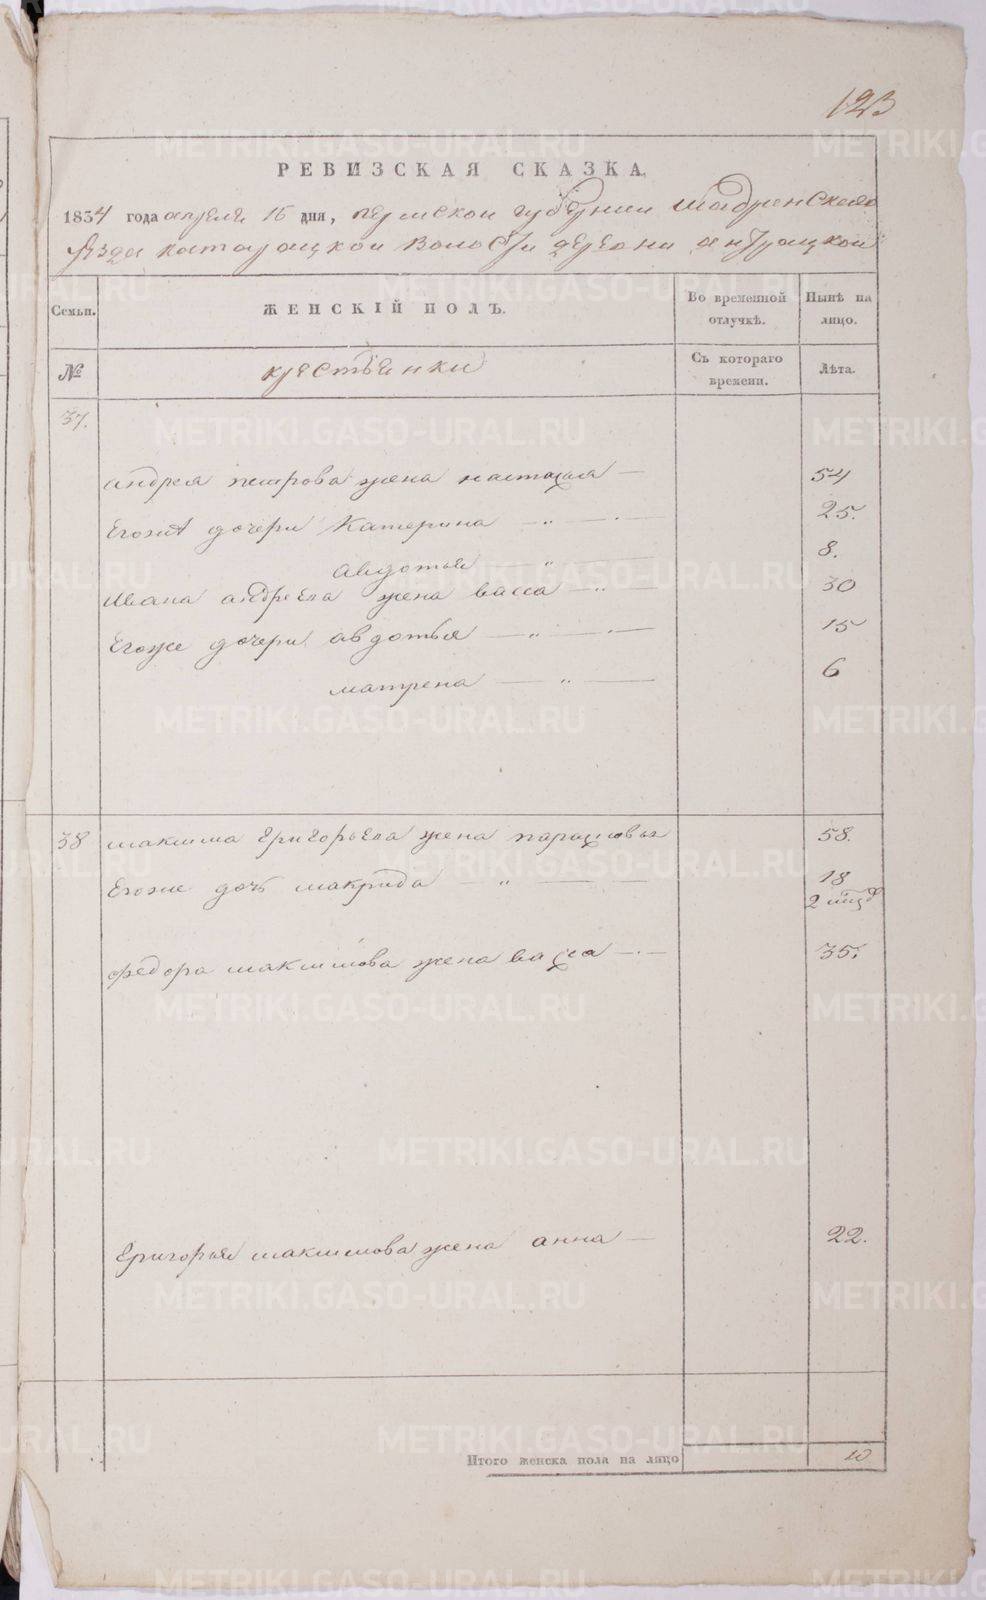 123
РЕВИЗСКАЯ СКАЗКА.
1834 года апреля 16 дня, пермской губернии Шадринскаго
уезда катайской волости деревни
Семьи. ЖЕНСКІЙ ПОЛЪ. Во временной отлучкѣ. Нынѣ на лицо.
№ крестьянки Съ котораго времени. Лѣта.
37.
андрея петрова жена настасья — 54
Егоже дочери Катерина — „ — 25.
авдотья „ — 8.
Ивана андреева жена васса — „ — 30
Егоже дочери авдотья — „ — 15
матрена — „ — 6
38 максима Григорьева жена парасковья 58.
Егоже дочь макрида — „ — 18
2
федора максимова жена васса — 35.
Григорья максимова жена анна — 22.
Итого женска пола на лицо 10
METRIKI.GASO-URAL.RU